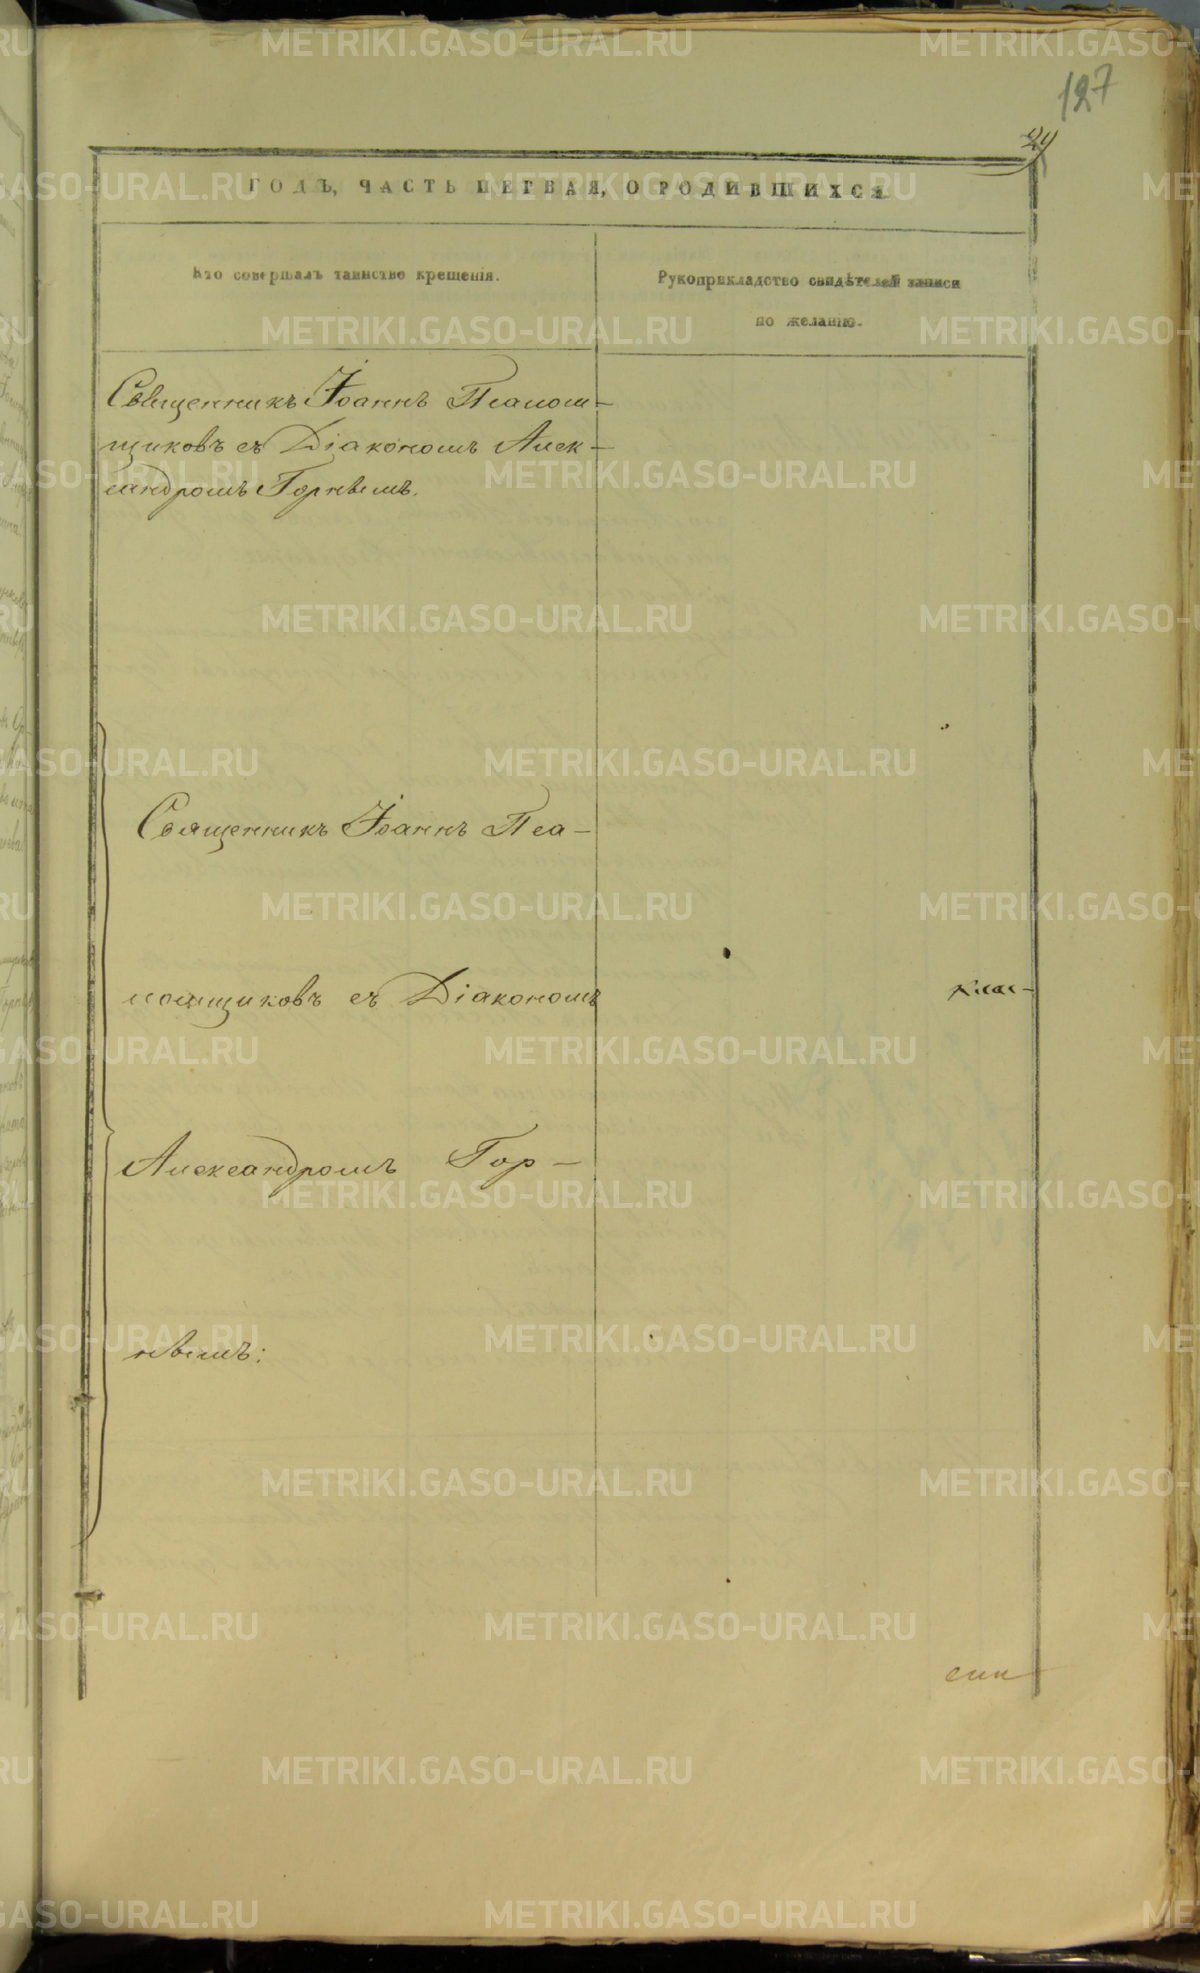 127
29
ГОДЪ, ЧАСТЬ ПЕРВАЯ, О РОДИВШИХСЯ
Кто совершалъ таинство крещенія.
Рукоприкладство свидѣтелей записи
по желанію.
Священникъ Іоаннъ Псалом-
щиковъ съ Діакономъ Алек-
сандромъ Горнвымъ.
Священникъ Іоаннъ Пса-
ломщиковъ съ Діакономъ
Александромъ Гор-
невымъ:
METRIKI.GASO-URAL.RU